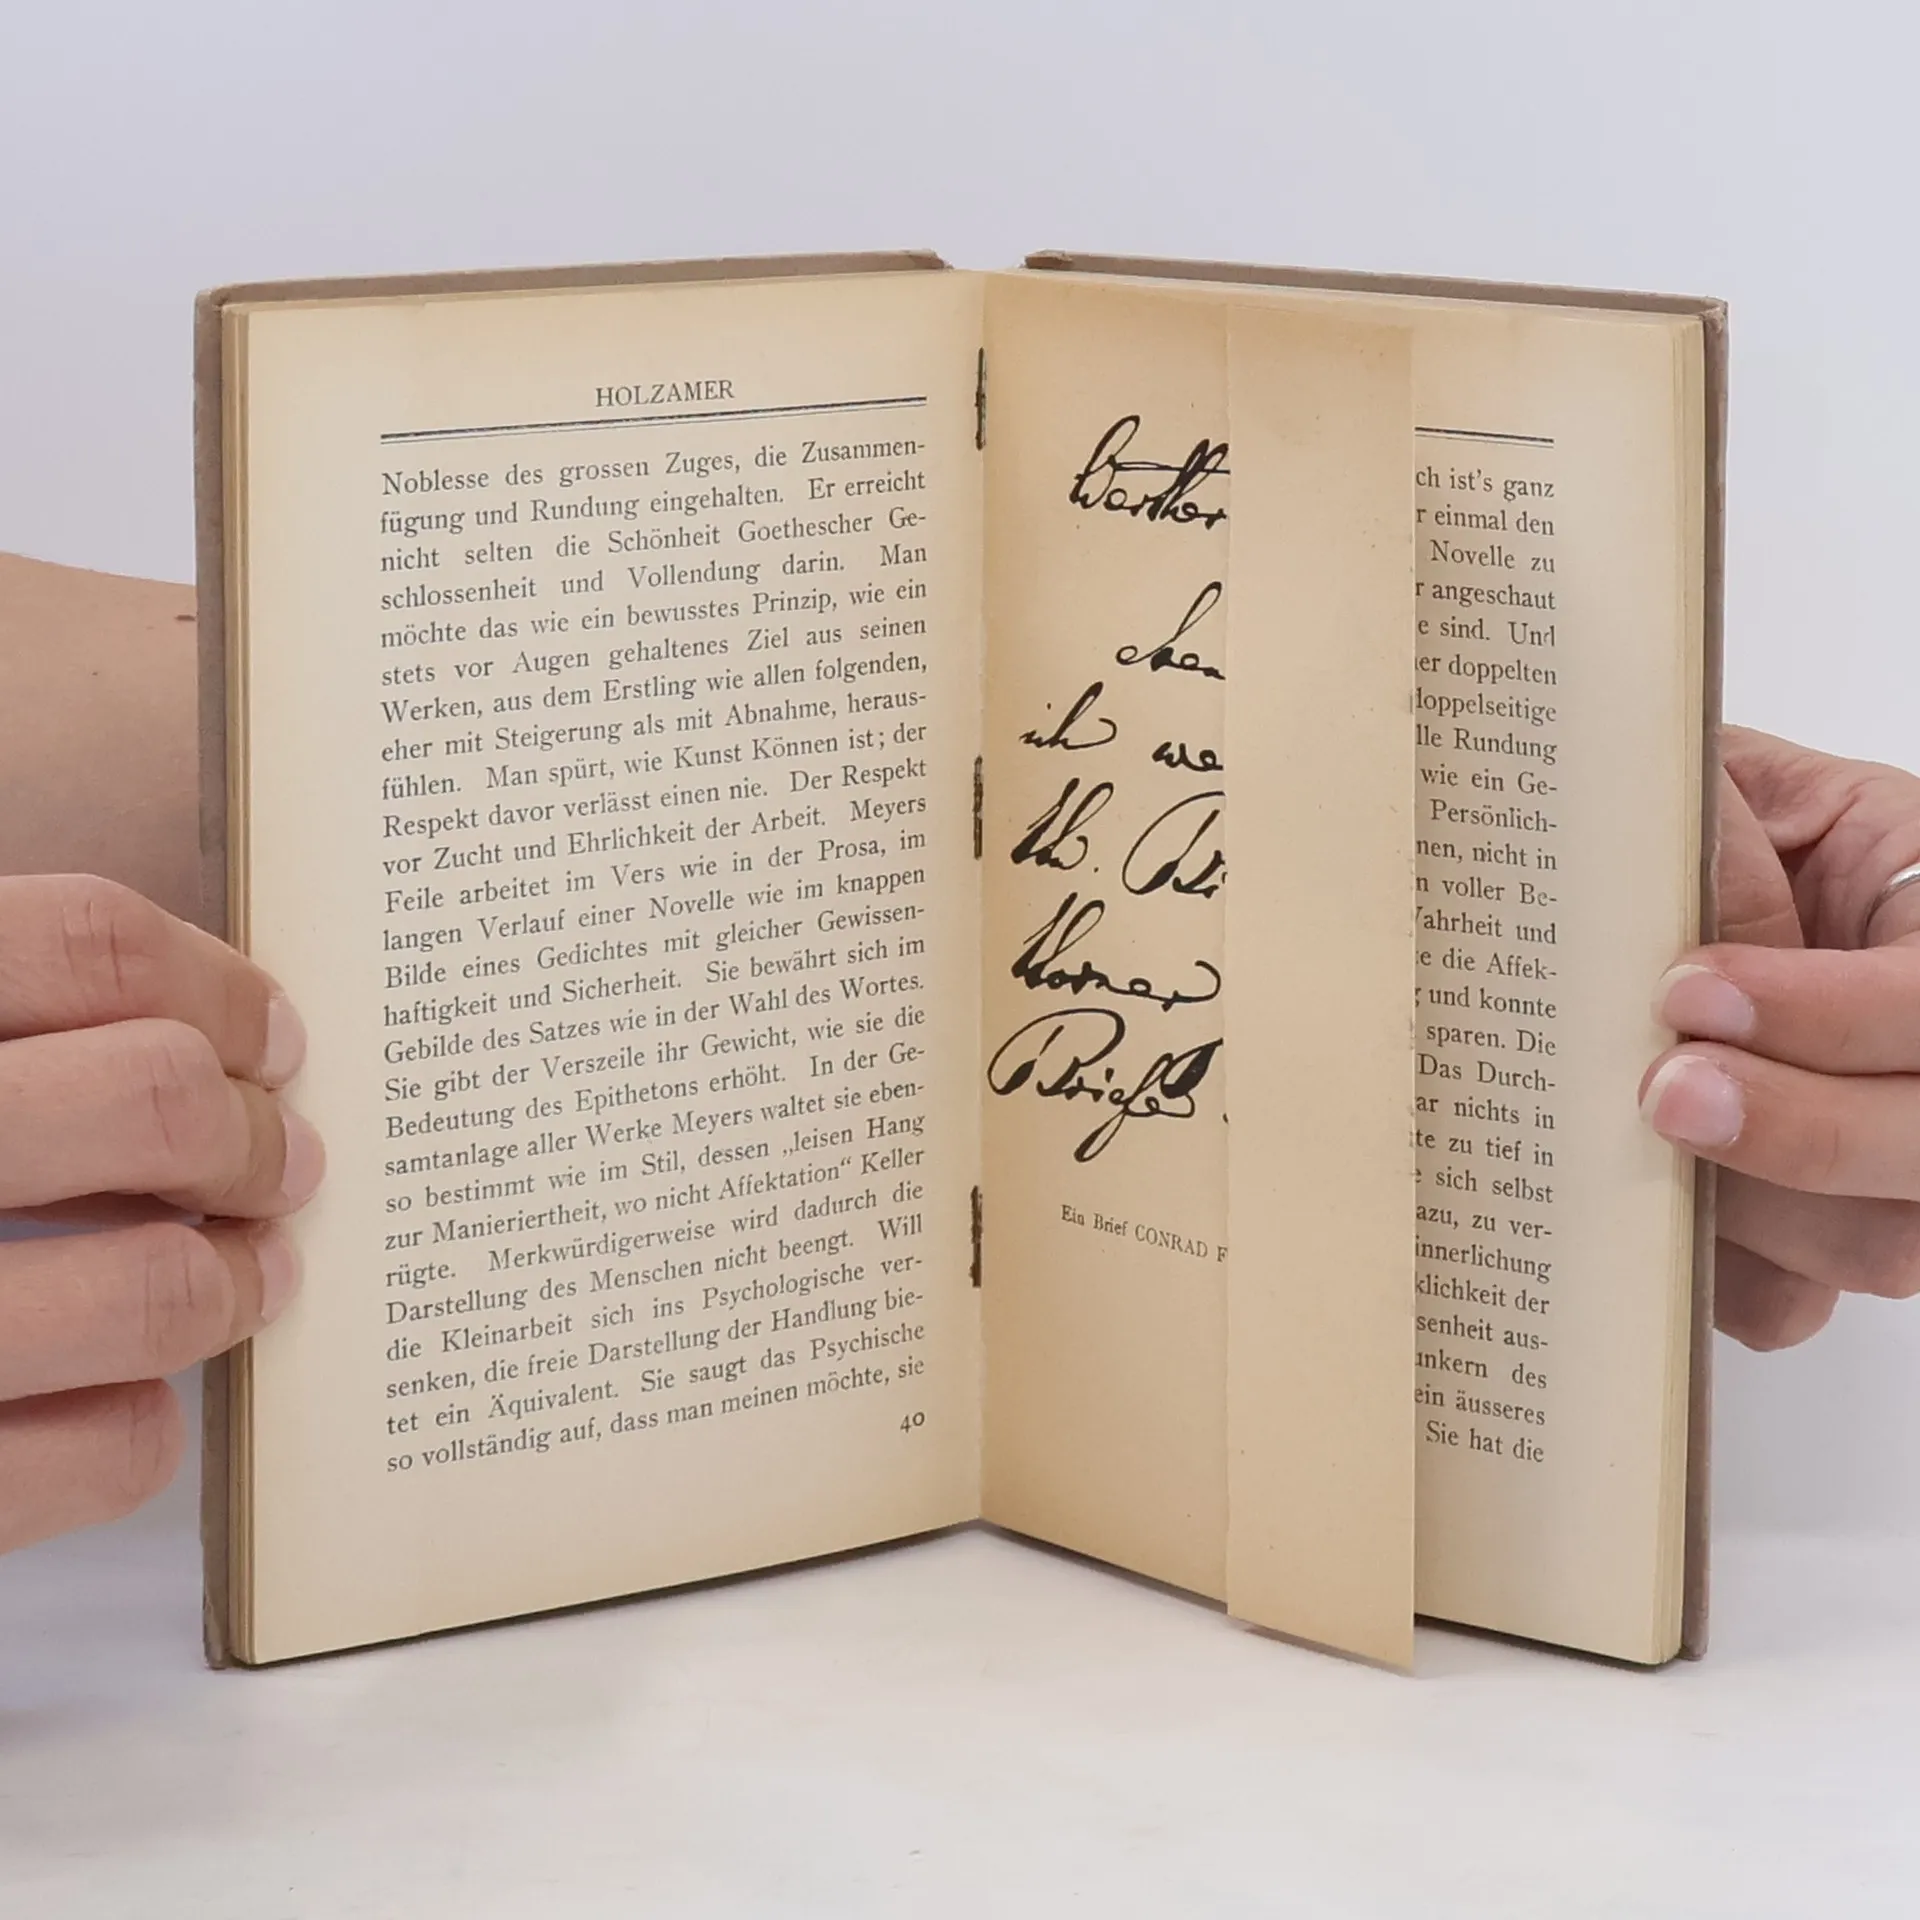 HOLZAMER
Noblesse des grossen Zuges, die Zusammen-
fügung und Rundung eingehalten. Er erreicht
nicht selten die Schönheit Goethescher Ge-
schlossenheit und Vollendung darin. Man
möchte das wie ein bewusstes Prinzip, wie ein
stets vor Augen gehaltenes Ziel aus seinen
Werken, aus dem Erstling wie allen folgenden,
eher mit Steigerung als mit Abnahme, heraus-
fühlen. Man spürt, wie Kunst Können ist; der
Respekt davor verlässt einen nie. Der Respekt
vor Zucht und Ehrlichkeit der Arbeit. Meyers
Feile arbeitet im Vers wie in der Prosa, im
langen Verlauf einer Novelle wie im knappen
Bilde eines Gedichtes mit gleicher Gewissen-
haftigkeit und Sicherheit. Sie bewährt sich im
Gebilde des Satzes wie in der Wahl des Wortes.
Sie gibt der Verszeile ihr Gewicht, wie sie die
Bedeutung des Epithetons erhöht. In der Ge-
samtanlage aller Werke Meyers waltet sie eben-
so bestimmt wie im Stil, dessen „leisen Hang
zur Manieriertheit, wo nicht Affektation“ Keller
rügte. Merkwürdigerweise wird dadurch die
Darstellung des Menschen nicht beengt. Will
die Kleinarbeit sich ins Psychologische ver-
senken, die freie Darstellung der Handlung bie-
tet ein Äquivalent. Sie saugt das Psychische
so vollständig auf, dass man meinen möchte, sie
40
Werther
eben
ich we
Th. Bri
Storner
Briefe
Ein Brief CONRAD F
ch ist's ganz
r einmal den
Novelle zu
r angeschaut
e sind. Und
er doppelten
doppelseitige
lle Rundung
wie ein Ge-
Persönlich-
nen, nicht in
n voller Be-
Wahrheit und
te die Affek-
g und konnte
sparen. Die
Das Durch-
ar nichts in
te zu tief in
e sich selbst
azu, zu ver-
innerlichung
klichkeit der
senheit aus-
unkern des
ein äusseres
Sie hat die